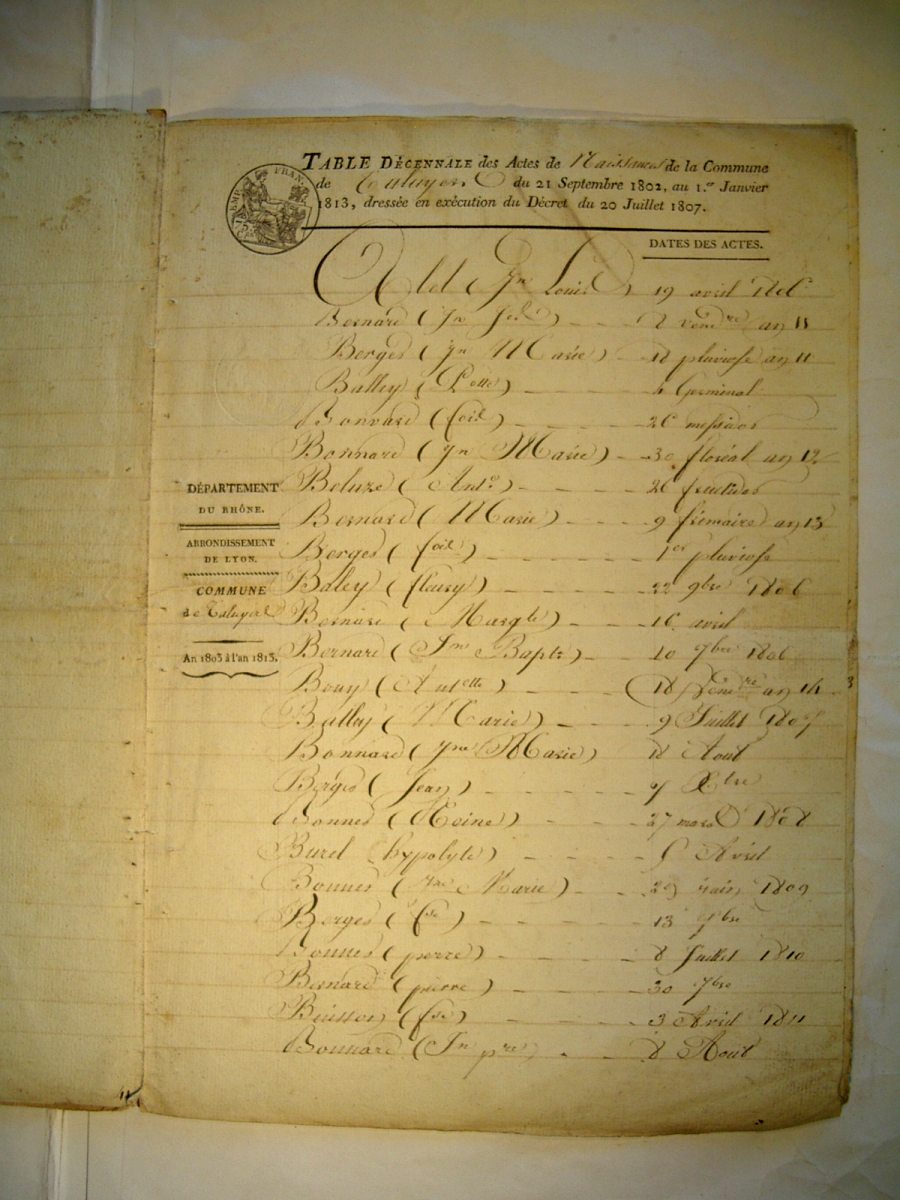 TABLE DÉCENNALE des Actes de Naissances de la Commune
de Taluyers du 21 Septembre 1802, au 1.er Janvier
1813, dressée en exécution du Décret du 20 Juillet 1807.
TIMP FRAN
DATES DES ACTES.
DÉPARTEMENT
DU RHÔNE.
ARRONDISSEMENT
DE LYON.
COMMUNE
de Taluyers
An 1803 à l'an 1813.
(Jn Louis) 19 avril 1806
Bernard (Jn 8 vendre an 11
Berges (Jn Marie) 18 pluviose an 11
Balley (Pette) 4 Germinal
Bonnard 26 messidor
Bonnard (Jn Marie) 30 floréal an 12
Beluze (Anto) 26 fructidor
Bernard (Marie) 9 frimaire an 13
Berges 1er pluviose
Baley (fleury) 22 9bre 1806
Bernard (Margte) 16 avril
Bernard (Jn Bapte) 10 7bre 1806
Bouy (Antette) 18 Vendre an 14
Balley (Marie) 9 Juillet 1807
Bonnard (Jne Marie) 18 Aout
Berges (Jean) 7 Xbre
Bonnes (Reine) 27 mars 1808
Burel (hypolyte) Avril
Bonnes (Jne Marie) 29 juin 1809
Berges (fse) 13 7bre
Bonnes (pierre) 8 Juillet 1810
Bernard (pierre) 30 7bre
Buisson (fse) 3 Avril 1811
Bonnard (Jn pre) 8 Aout